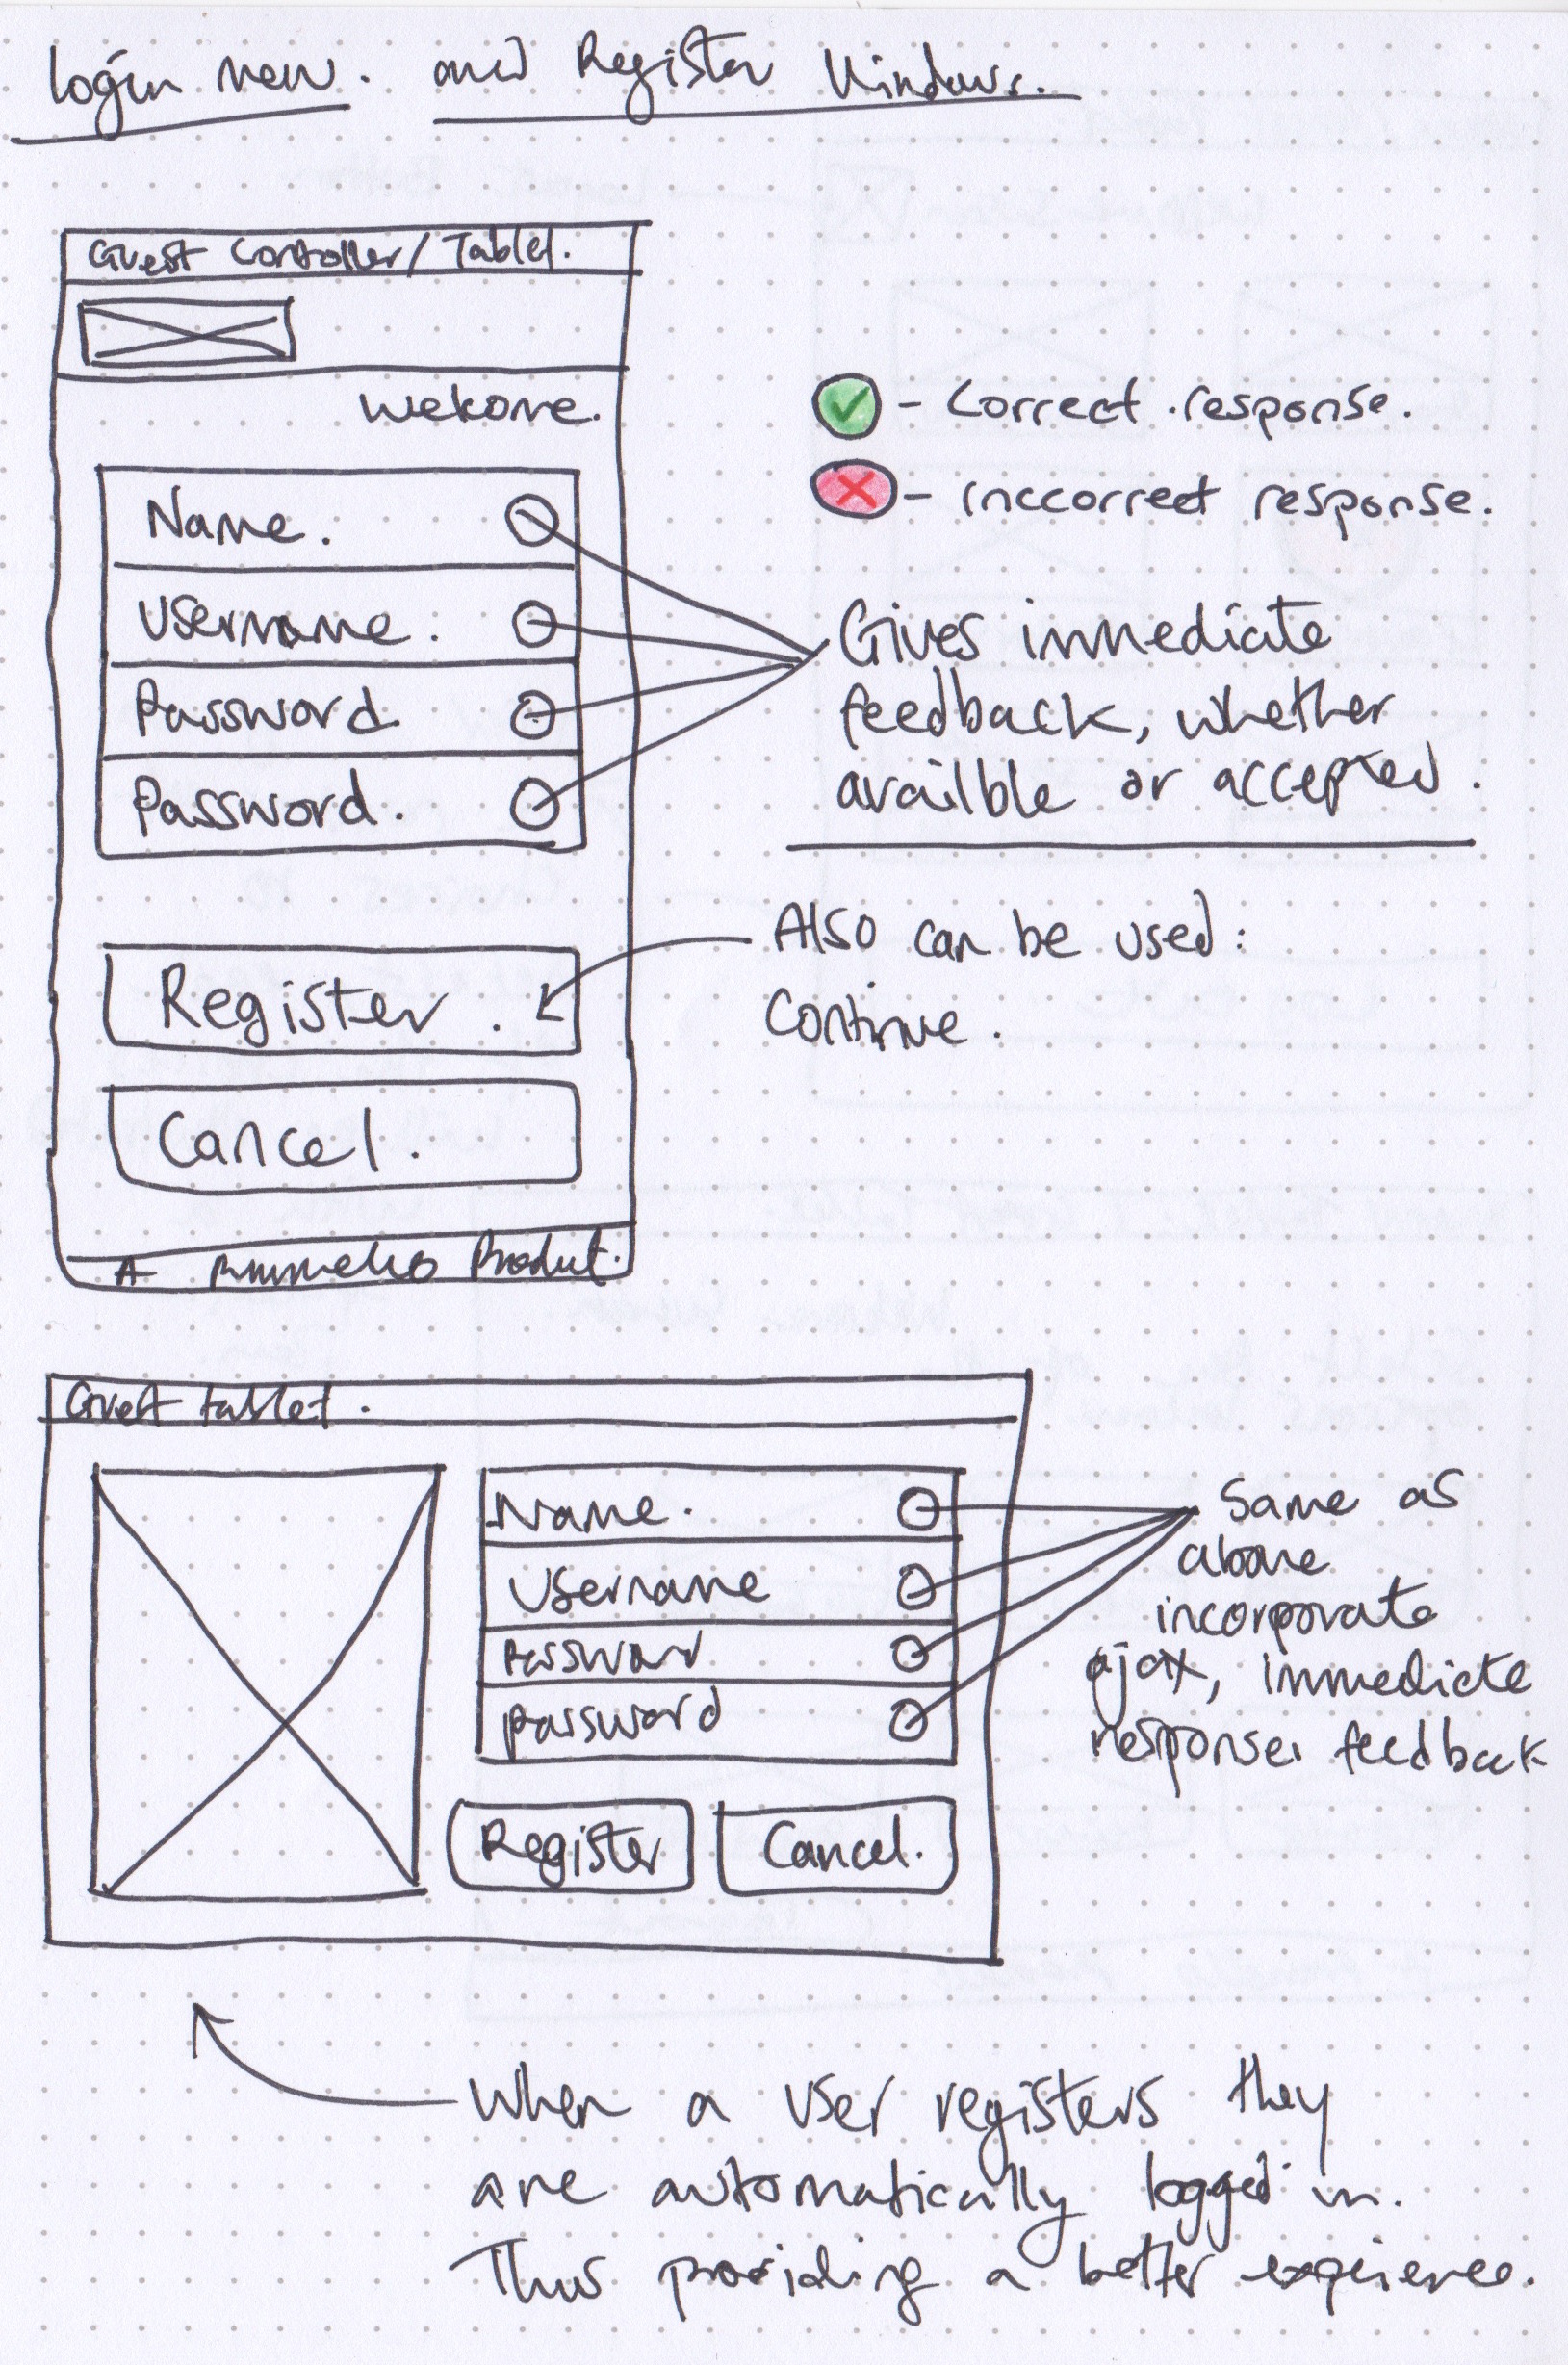 Login new. and Register Windows.
Guest Controller/Tablet.
Welcome.
Name.
Username.
Password
Password.
Register.
Cancel.
A Produt.
- Correct response.
- Inccorrect response.
Gives immediate
feedback, whether
availble or accepted.
Also can be used:
Continue.
Guest tablet.
Name.
Username
Password
password
Register
Cancel.
Same as
above
incorporate
ajax, immediate
response. feedback
When a user registers they
are automatically logged in.
Thus providing a better experience.